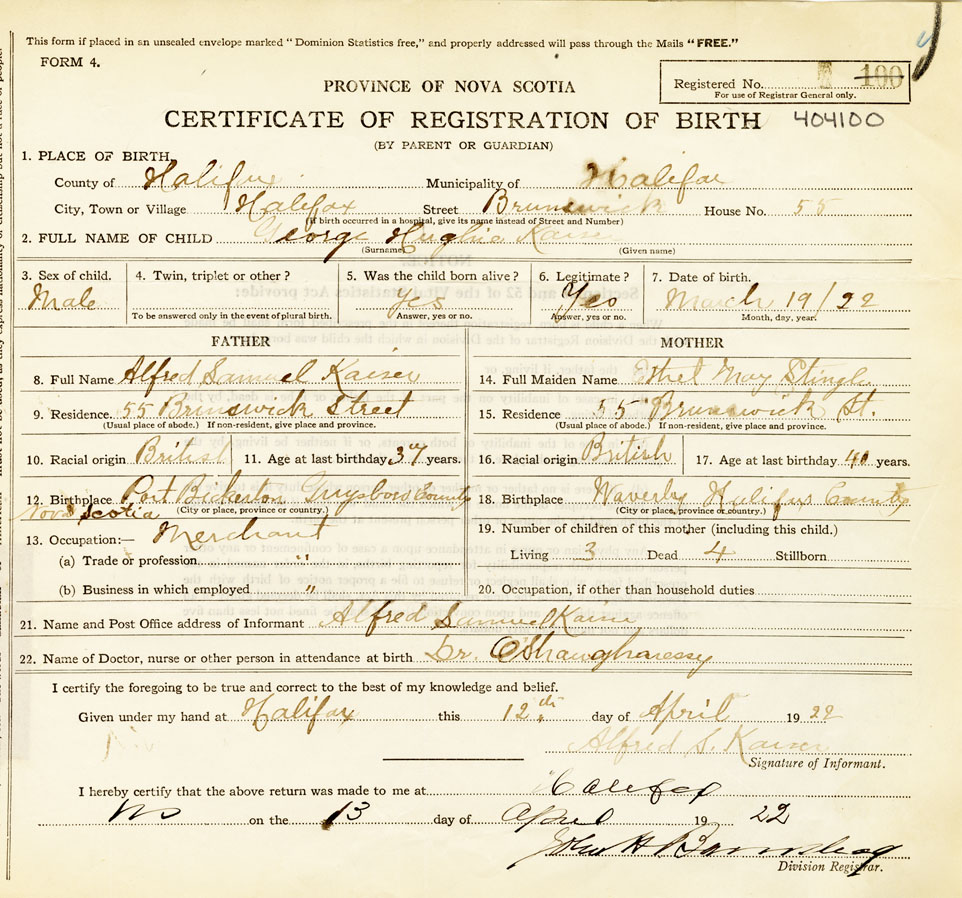 This form if placed in an unsealed envelope marked "Dominion Statistics free," and properly addressed will pass through the Mails "FREE."
FORM 4.
Registered No. 100
For use of Registrar General only.
PROVINCE OF NOVA SCOTIA
CERTIFICATE OF REGISTRATION OF BIRTH 404100
(BY PARENT OR GUARDIAN)
1. PLACE OF BIRTH
County of Halifax Municipality of Halifax
City, Town or Village Halifax Street Brunswick House No. 55
(If birth occurred in a hospital, give its name instead of Street and Number)
2. FULL NAME OF CHILD George Hughie Kaiser
(Surname) (Given name)
3. Sex of child. 4. Twin, triplet or other? 5. Was the child born alive? 6. Legitimate? 7. Date of birth.
Male Yes Yes March 19/22
To be answered only in the event of plural birth. Answer, yes or no. Answer, yes or no. Month, day, year.
FATHER MOTHER
8. Full Name Alfred Samuel Kaiser 14. Full Maiden Name Ethel May
9. Residence. 55 Brunswick Street 15. Residence 55 Brunswick St.
(Usual place of abode.) If non-resident, give place and province. (Usual place of abode.) If non-resident, give place and province.
10. Racial origin British 11. Age at last birthday 37 years. 16. Racial origin British 17. Age at last birthday 40 years.
12. Birthplace Port Bickerton Guysboro County 18. Birthplace Waverly Halifax County
Nova Scotia (City or place, province or country.) (City or place, province or country.)
13. Occupation:— Merchant 19. Number of children of this mother (including this child.)
(a) Trade or profession " Living 3 Dead 4 Stillborn
(b) Business in which employed " 20. Occupation, if other than household duties
21. Name and Post Office address of Informant Alfred Samuel Kaiser
22. Name of Doctor, nurse or other person in attendance at birth Dr. O'Shaughnessy
I certify the foregoing to be true and correct to the best of my knowledge and belief.
Given under my hand at Halifax this 12th day of April 1922
Alfred S. Kaiser
Signature of Informant.
I hereby certify that the above return was made to me at Halifax
NS on the 13 day of April 19 22
John H.
Division Registrar.